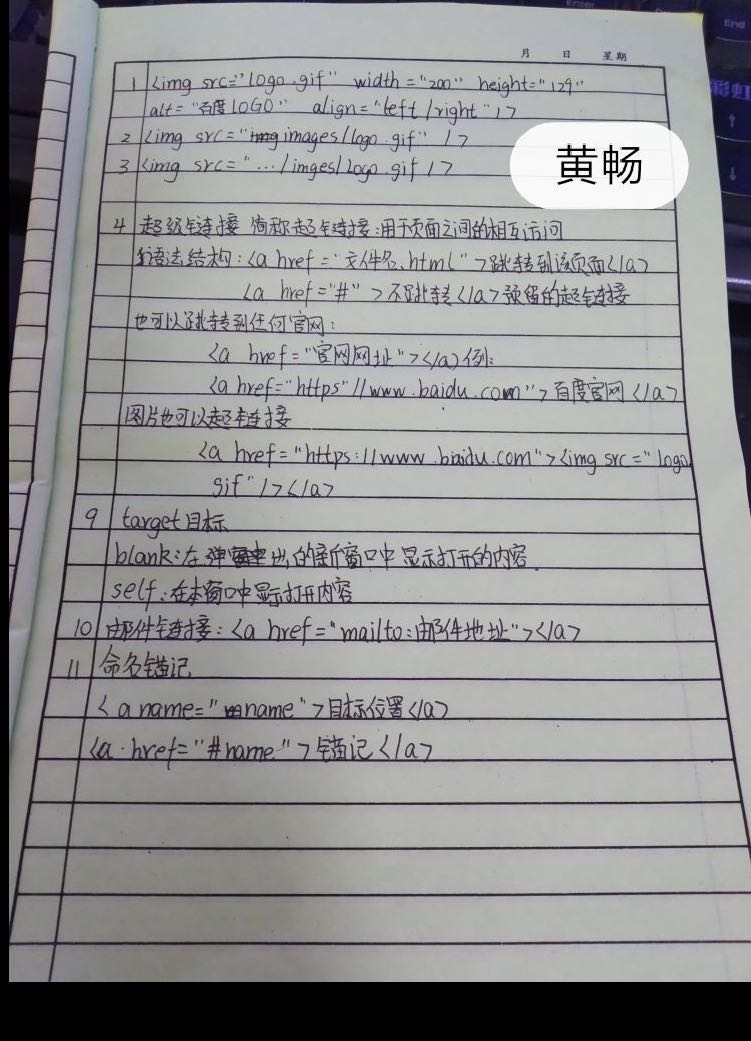 月 日 星期
1 <img src="logo.gif" width="200" height="129"
alt="百度LOGO" align="left/right"/>
2 <img src="images/logo.gif" />
黄畅
3 <img src="…/imges/logo.gif />
4 超级链接 简称超链接:用于页面之间的相互访问
语法结构:<a href="文件名.html">跳转到该页面</a>
<a href="#">不跳转</a>预留的超链接
也可以跳转到任何官网:
<a href="官网网址"></a>例:
<a href="https"//www.baidu.com">百度官网</a>
图片也可以超链接
<a href="https://www.baidu.com"><img src="logo.
gif"/></a>
9 target目标
blank:在弹出的新窗口中显示打开的内容.
self:在本窗口中显示打开内容
10 邮件链接:<a href="mailto:邮件地址"></a>
11 命名锚记
<a name="name">目标位置</a>
<a href="#name">锚记</a>
End